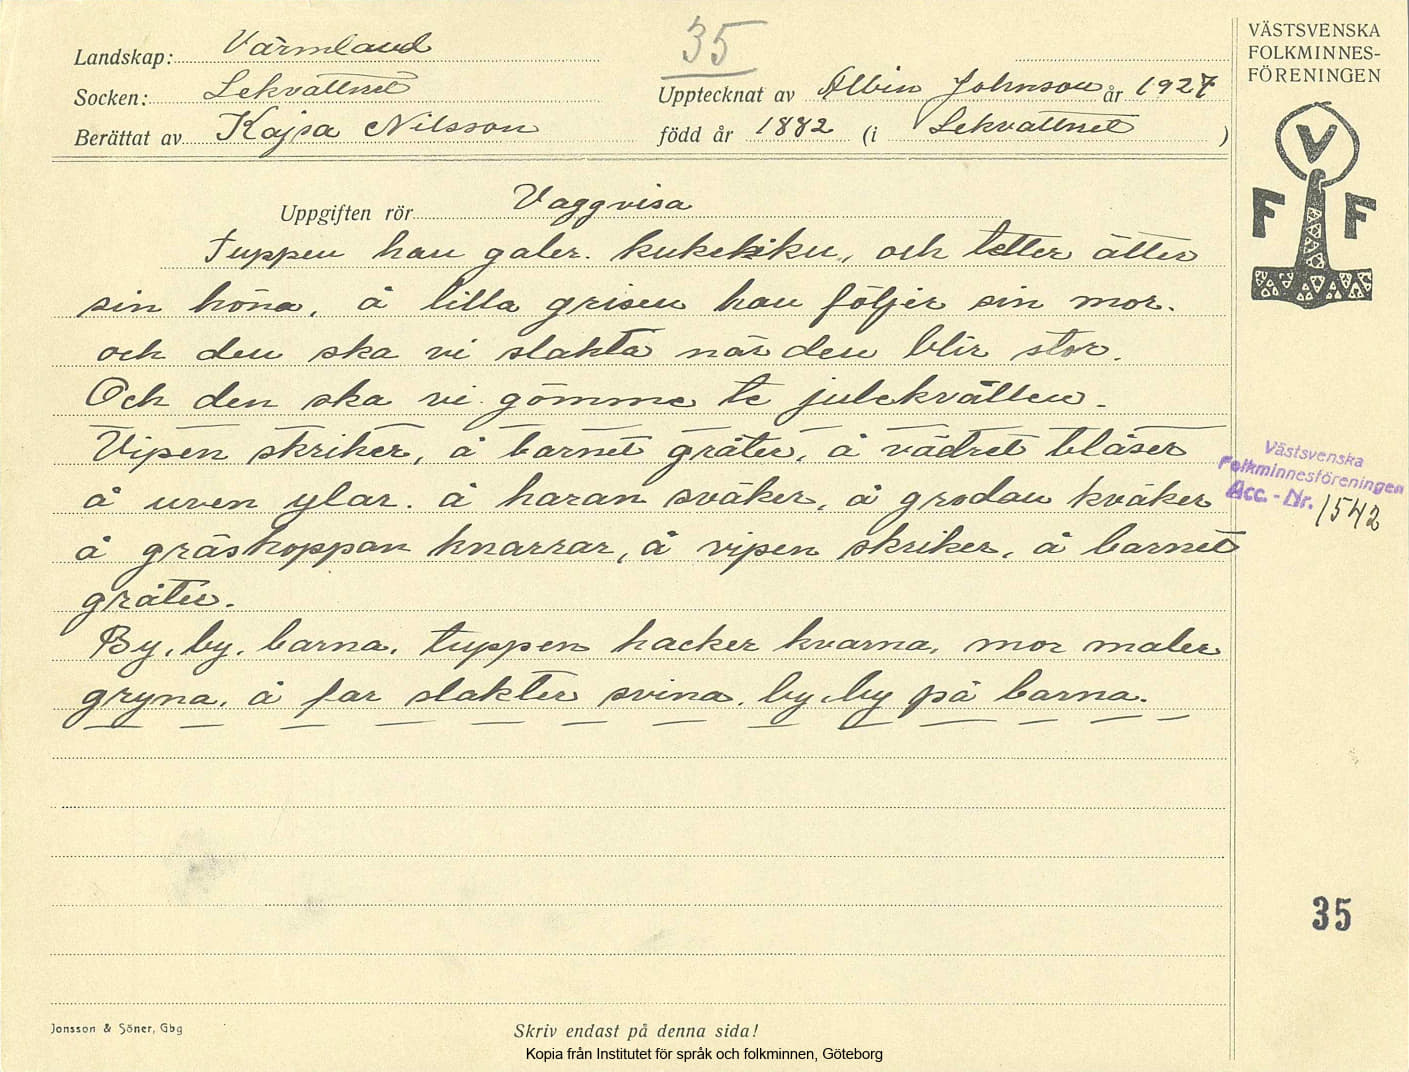 35
Landskap: Värmland
Socken: Lekvattnet
Berättat av Kajsa Nilsson
Upptecknat av Albin Johnson år 1927
född år 1882 (i Lekvattnet )
VÄSTSVENSKA
FOLKMINNES-
FÖRENINGEN
V
F F
Uppgiften rör Vaggvisa
Tuppen han galer. kukeliku, och letter ätter
sin höna, å lilla grisen han följer sin mor.
och den ska vi slakta när den blir stor.
Och den ska vi gömme te julekvällen.
Vipen skriker, å barnet gråter, å vädret blåser
å uven ylar. å haran sväker, å grodan kväker
å gräshoppan knarrar, å vipen skriker, å barnet
gråter.
By, by, barna, tuppen hacker kvarna, mor maler
gryna, å far slakter svina, by, by på barna.
Västsvenska
Folkminnesföreningen
Acc. - Nr. 1542
35
Jonsson & Söner, Gbg
Skriv endast på denna sida!
Kopia från Institutet för språk och folkminnen, Göteborg